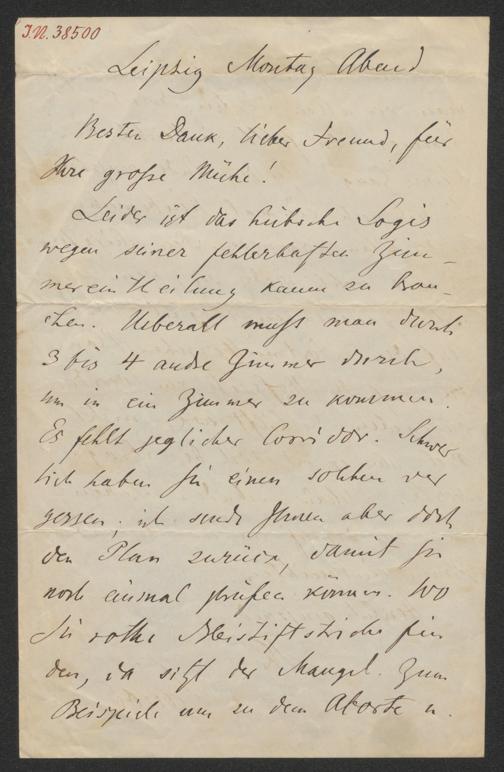 I.N. 38500
Leipzig Montag Abend
Besten Dank, lieber Freund, für
Ihre große Mühe!
Leider ist das hübsche Logis
wegen seiner fehlerhaften Zim-
mereintheilung kaum zu brau-
chen. Ueberall muß man durch
3 bis 4 andre Zimmer durch,
um in ein Zimmer zu kommen.
Es fehlt jeglicher Corridor. Schwer
lich haben Sie einen solchen ver
gessen; ich sende Ihnen aber doch
den Plan zurück, damit Sie
noch einmal prüfen können. Wo
Sie rothe Bleistiftstriche fin
den, da sitzt der Mangel. Zum
Beispiele um zu dem Aborte u.